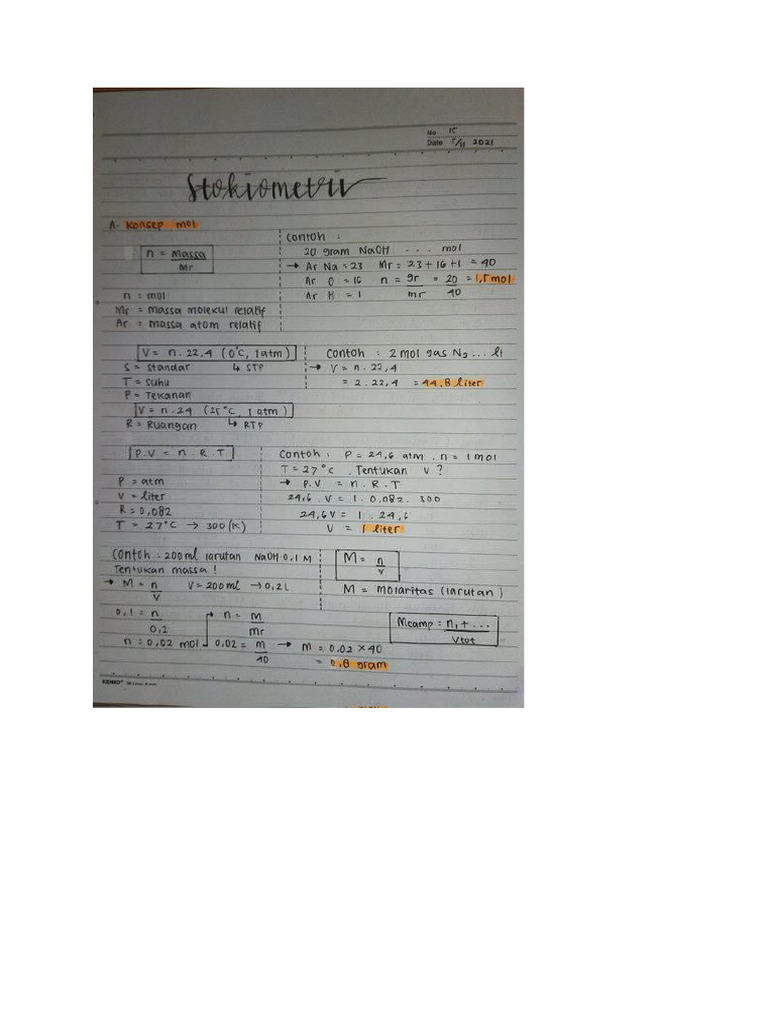 No 15
Date 5/11 2021
Stokiometri
A. Konsep mol
n = Massa
Mr
n = mol
Mr = massa molekul relatif
Ar = massa atom relatif
Contoh :
20 gram NaOH ... mol
→ Ar Na = 23 Mr = 23 + 16 + 1 = 40
Ar O = 16 n = gr = 20 = 1,5 mol
Ar H = 1 mr 40
V = n. 22,4 (0°C, 1 atm)
S = Standar ↳ STP
T = Suhu
P = Tekanan
V = n. 24 (25°C, 1 atm)
R = Ruangan ↳ RTP
Contoh : 2 mol gas N₂ ... lt
→ V = n. 22,4
= 2. 22,4 = 44,8 liter
P.V = n. R. T
P = atm
V = liter
R = 0,082
T = 27°C → 300 (K)
Contoh : P = 24,6 atm . n = 1 mol
T = 27°C . Tentukan V ?
→ P.V = n. R. T
24,6 . V = 1. 0,082. 300
24,6 V = 1. 24,6
V = 1 liter
Contoh : 200 ml larutan NaOH 0,1 M
Tentukan massa !
→ M = n V = 200 ml → 0,2 L
V
0,1 = n
0,2
n = 0,02 mol
n = m
mr
0,02 = m → m = 0.02 × 40
40
= 0,8 gram
M = n
V
M = molaritas (larutan)
Mcamp = n₁ + ...
Vtot
KENKO